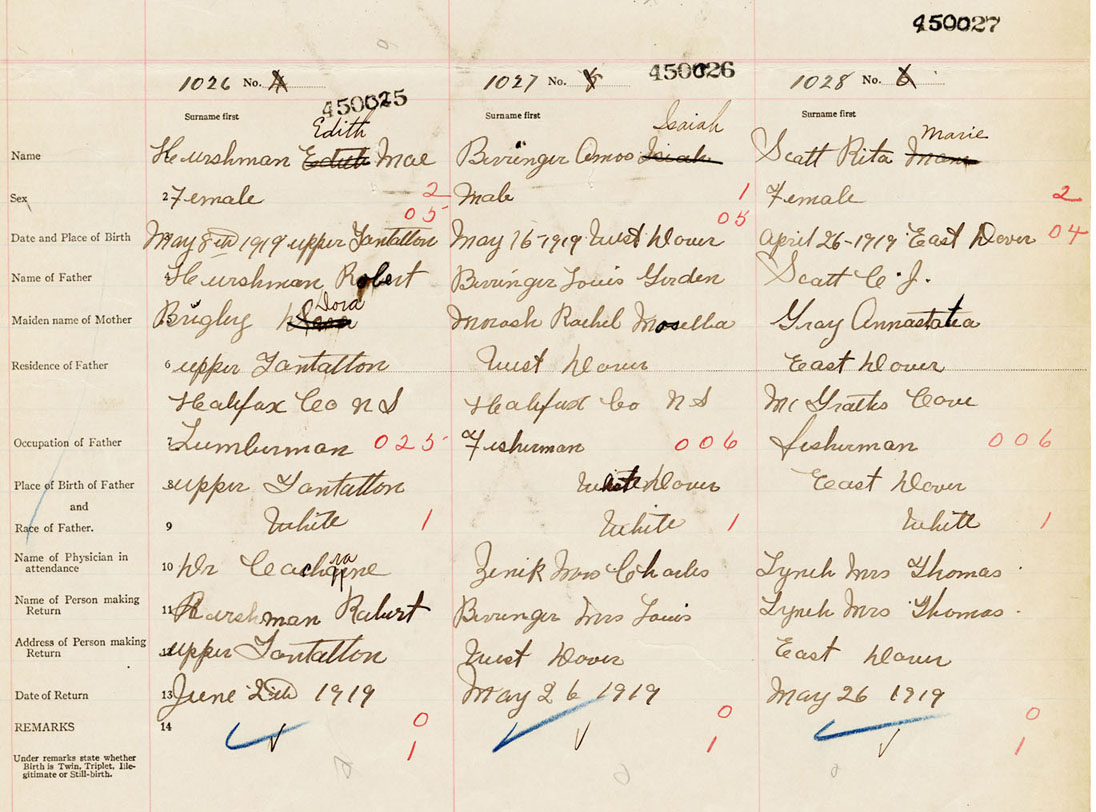 450027
1026 No. 4 1027 No. 5 450026 1028 No. 6
450025
Surname first Surname first Surname first
Edith Isaiah Marie
Name Hurshman Edith Mae Beringer Amos Isiah Scott Rita
Sex 2 Female 2 Male 1 Female 2
05 05
Date and Place of Birth May 8th 1919 upper Tantallon May 16-1919 West Dover April 26-1919 East Dover 04
Name of Father 4 Hurshman Robert Beringer Louis Gorden Scott C. J.
Dora
Maiden name of Mother Brigley Morash Rachel Gray Annastatia
Residence of Father 6 upper Tantallon West Dover East Dover
Halifax Co N S Halifax Co N S Mc Graths Cove
Occupation of Father 7 Lumberman 025 Fisherman 006 fisherman 006
Place of Birth of Father upper Tantallon West Dover East Dover
and
Race of Father. 9 White 1 White 1 White 1
Name of Physician in
attendance 10 Dr Zenik Mrs Charles Lynch Mrs Thomas
Name of Person making
Return 11 Harshman Robert Beringer Mrs Louis Lynch Mrs Thomas
Address of Person making
Return 12 upper Tantallon West Dover East Dover
Date of Return 13 June 2th 1919 May 26 1919 May 26 1919
REMARKS 14 0 0 0
1 1 1
Under remarks state whether
Birth is Twin, Triplet, Ille-
gitimate or Still-birth.